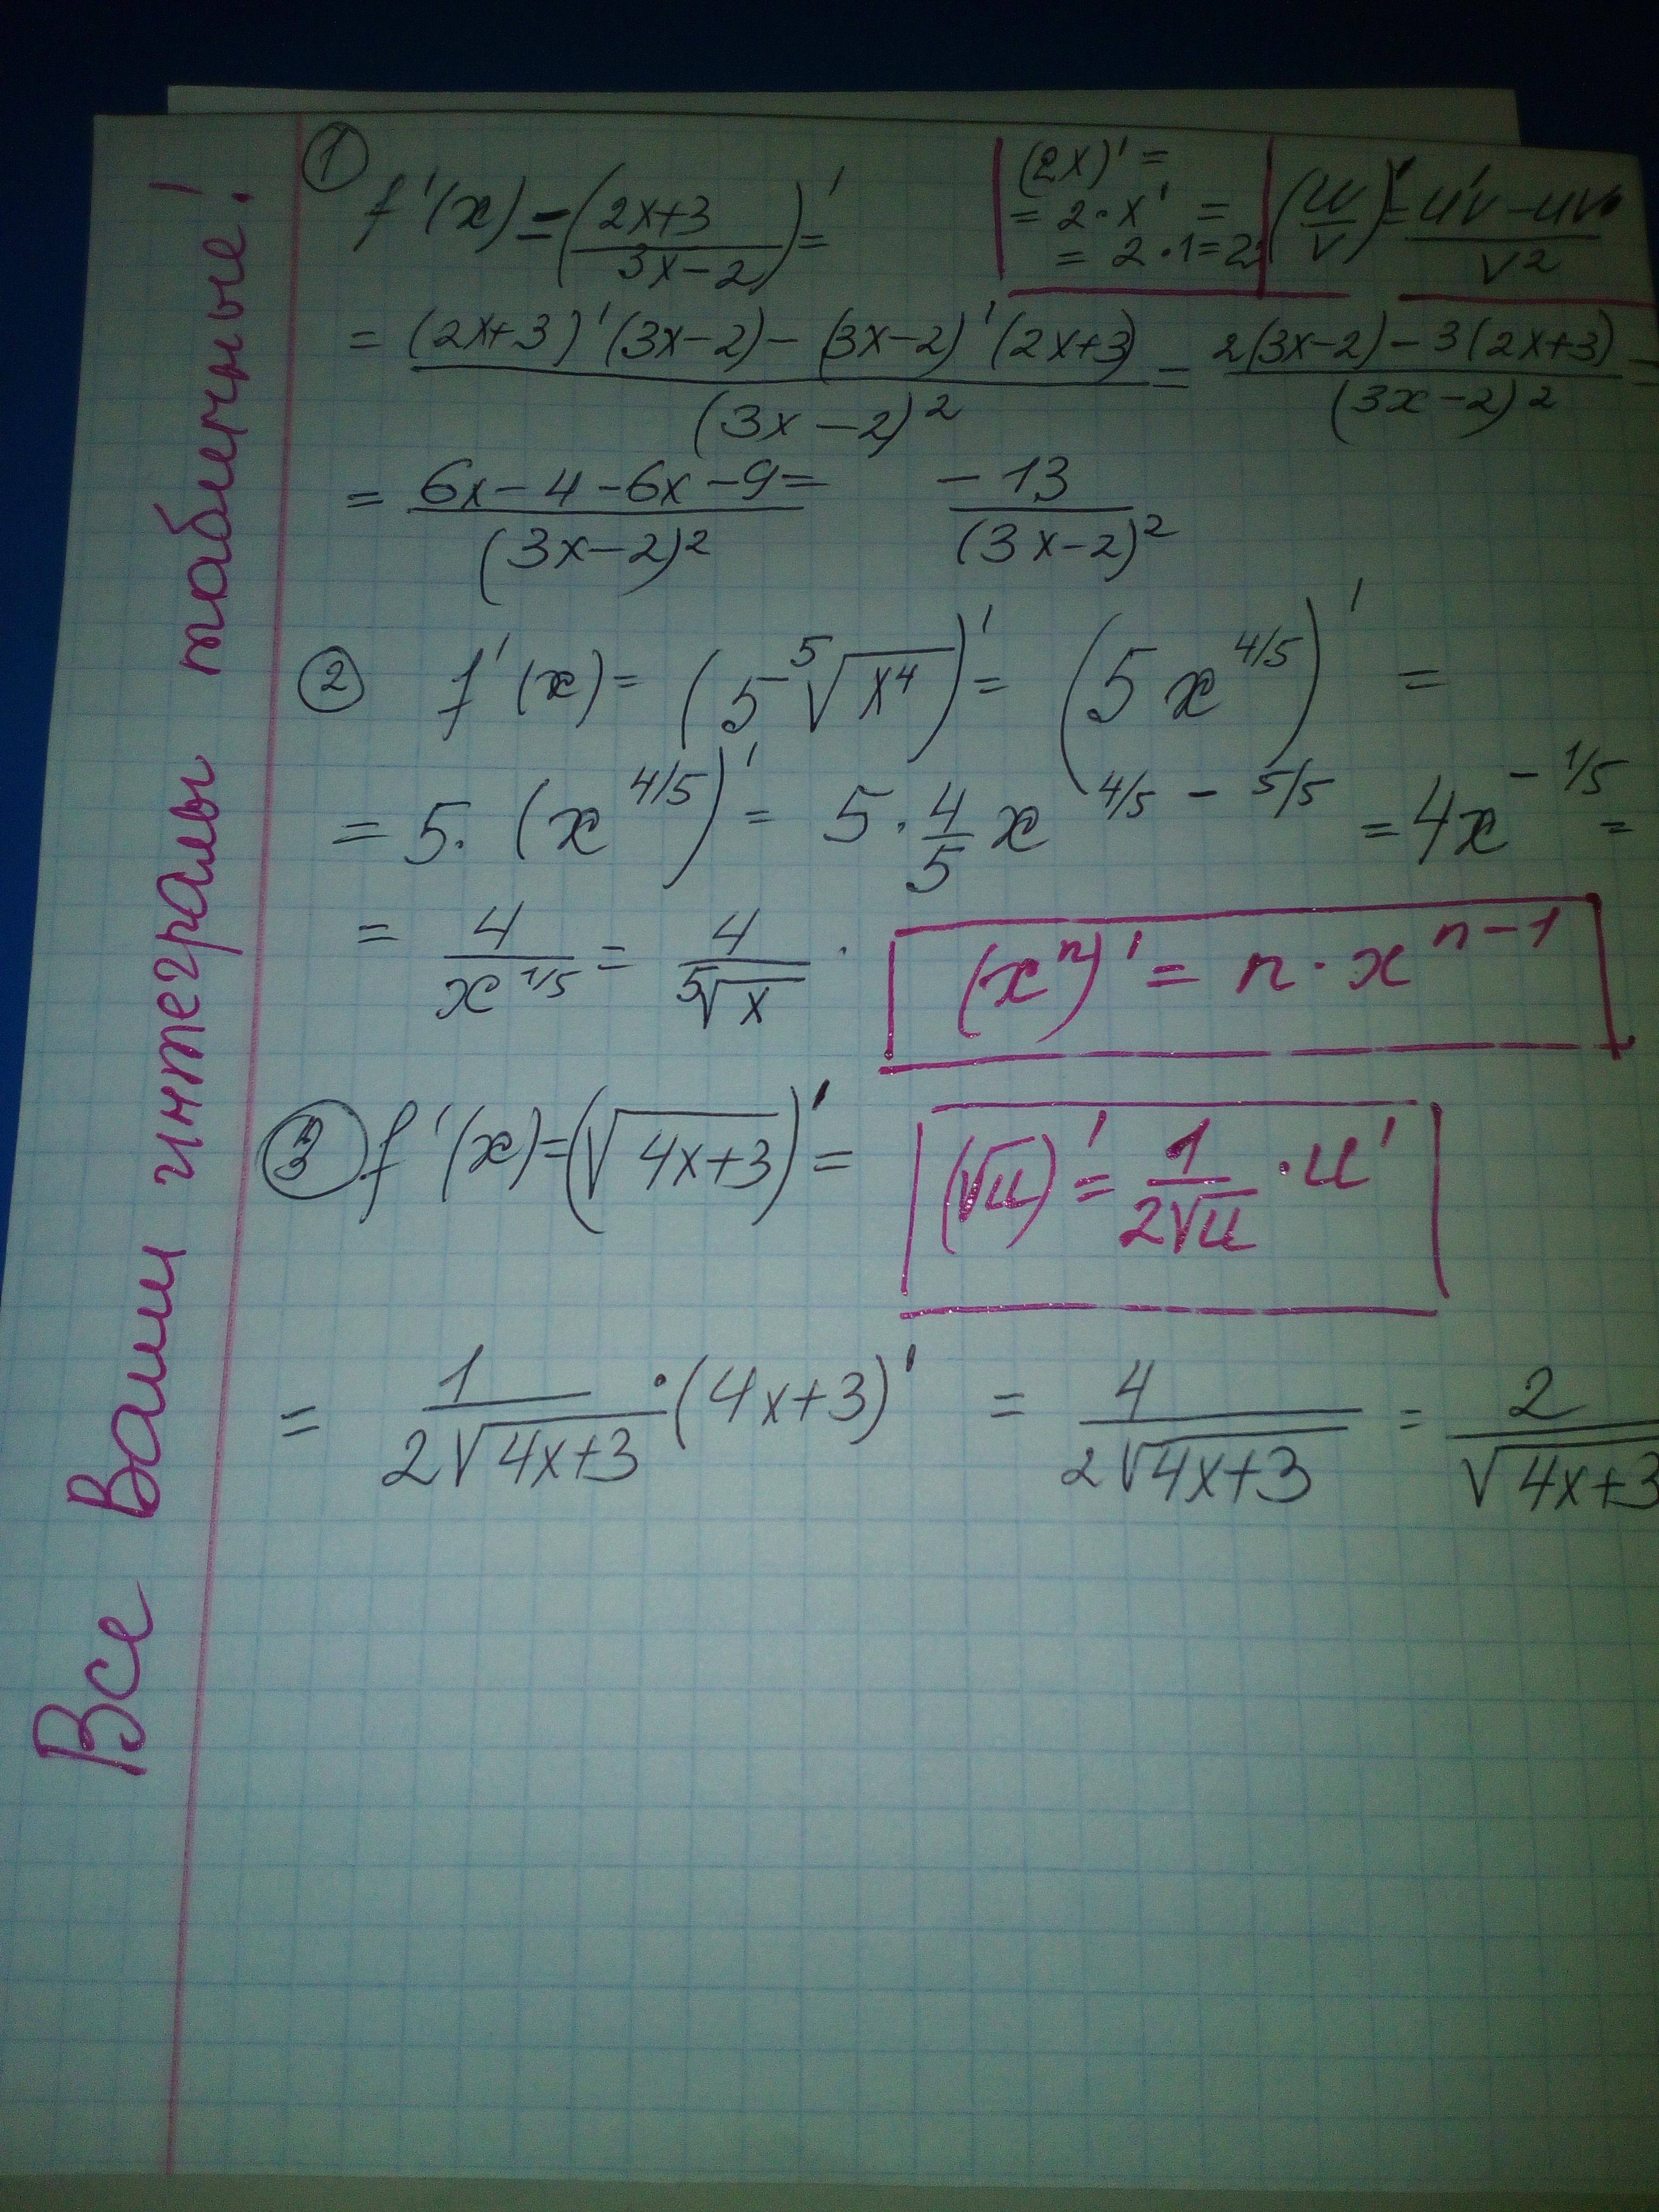 Все Ваши интегралы табличные!
① f'(x) = (2x+3 / 3x-2)' =
(2x)' =
= 2·x' =
= 2·1=2;
(u/v)' = u'v-uv' / v²
= (2x+3)'(3x-2) - (3x-2)'(2x+3) / (3x-2)² = 2(3x-2) - 3(2x+3) / (3x-2)² =
= 6x-4-6x-9 / (3x-2)² = -13 / (3x-2)²
② f'(x) = (5 ⁵√x⁴)' = (5x^4/5)' =
= 5·(x^4/5)' = 5·4/5 x^4/5 - 5/5 = 4x^-1/5 =
= 4 / x^1/5 = 4 / ⁵√x .
(xⁿ)' = n·x^n-1
③ f'(x) = (√4x+3)' =
(√u)' = 1 / 2√u · u'
= 1 / 2√4x+3 · (4x+3)' = 4 / 2√4x+3 = 2 / √4x+3